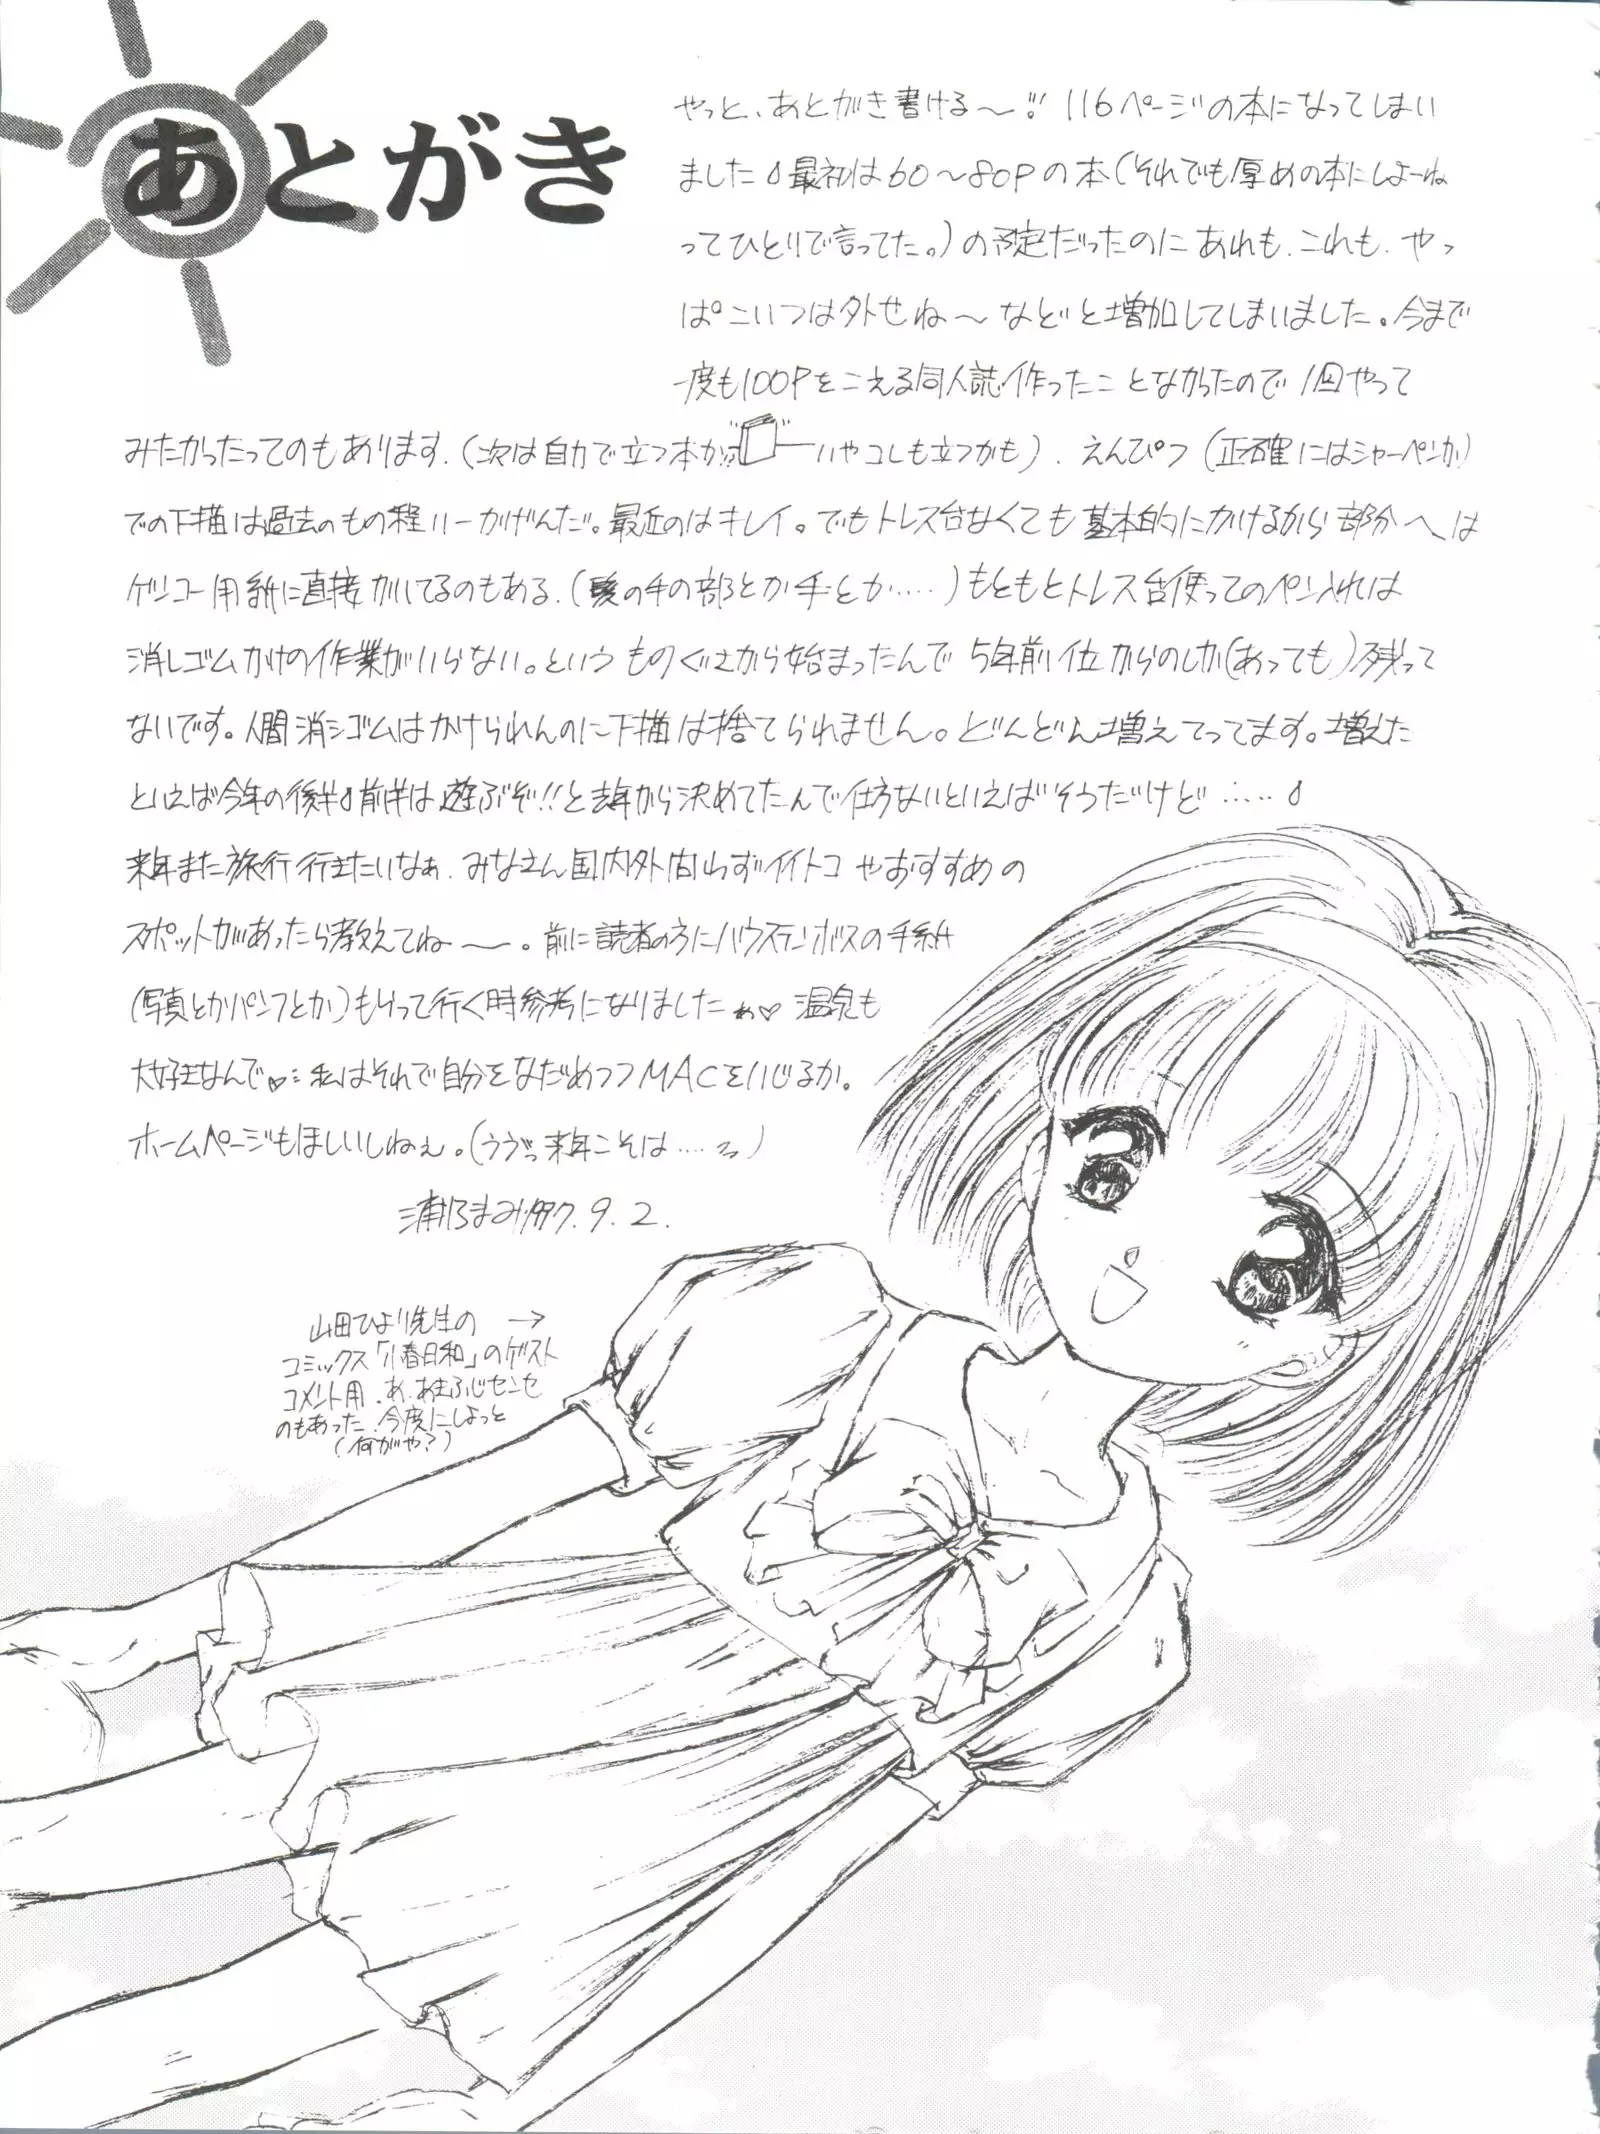 あとがき
やっと、あとがき書ける〜!! 116ページの本になってしまい
ました 最初は60〜80Pの本(それでも厚めの本にしよーね
ってひとりで言ってた。)の予定だったのに あれも、これも、やっ
ぱこいつは外せね〜などと増加してしまいました。今まで
一度も100Pをこえる同人誌作ったことなかったので1回やって
みたかったってのもあります。(次は自力で立つ本か いやコレも立つかも)、えんぴつ(正確にはシャーペンか)
での下描は過去のもの程いーかげんだ。最近のはキレイ。でもトレス台なくても基本的にかけるから部分へは
ゲンコー用紙に直接かいてるのもある、(髪の毛の部とか手とか……)もともとトレス台使ってのペン入れは
消しゴムかけの作業がいらない。というものぐさから始まったんで5年前位からのしか(あっても)残って
ないです。人間消シゴムはかけられんのに下描は捨てられません。どんどん増えてってます。増えた
といえば今年の後半 前半は遊ぶぞ!!と去年から決めてたんで仕方ないといえばそうだけど……
来年また旅行行きたいなぁ、みなさん国内外問らずイイトコやおすすめの
スポットがあったら教えてね〜。前に読者の方にハウステンボスの手紙
(写真とかパンフとか)もらって行く時参考になりました♡ 温泉も
大好きなんで♡ 私はそれで自分をなだめつつMACをいじるか。
ホームページもほしいしねぇ。(ううっ来年こそは……)
まみ '97. 9. 2.
山田ひより先生の →
コミックス「小春日和」のゲスト
コメント用、あ、あまふじセンセ
のもあった、今度にしよっと
(何がや?)